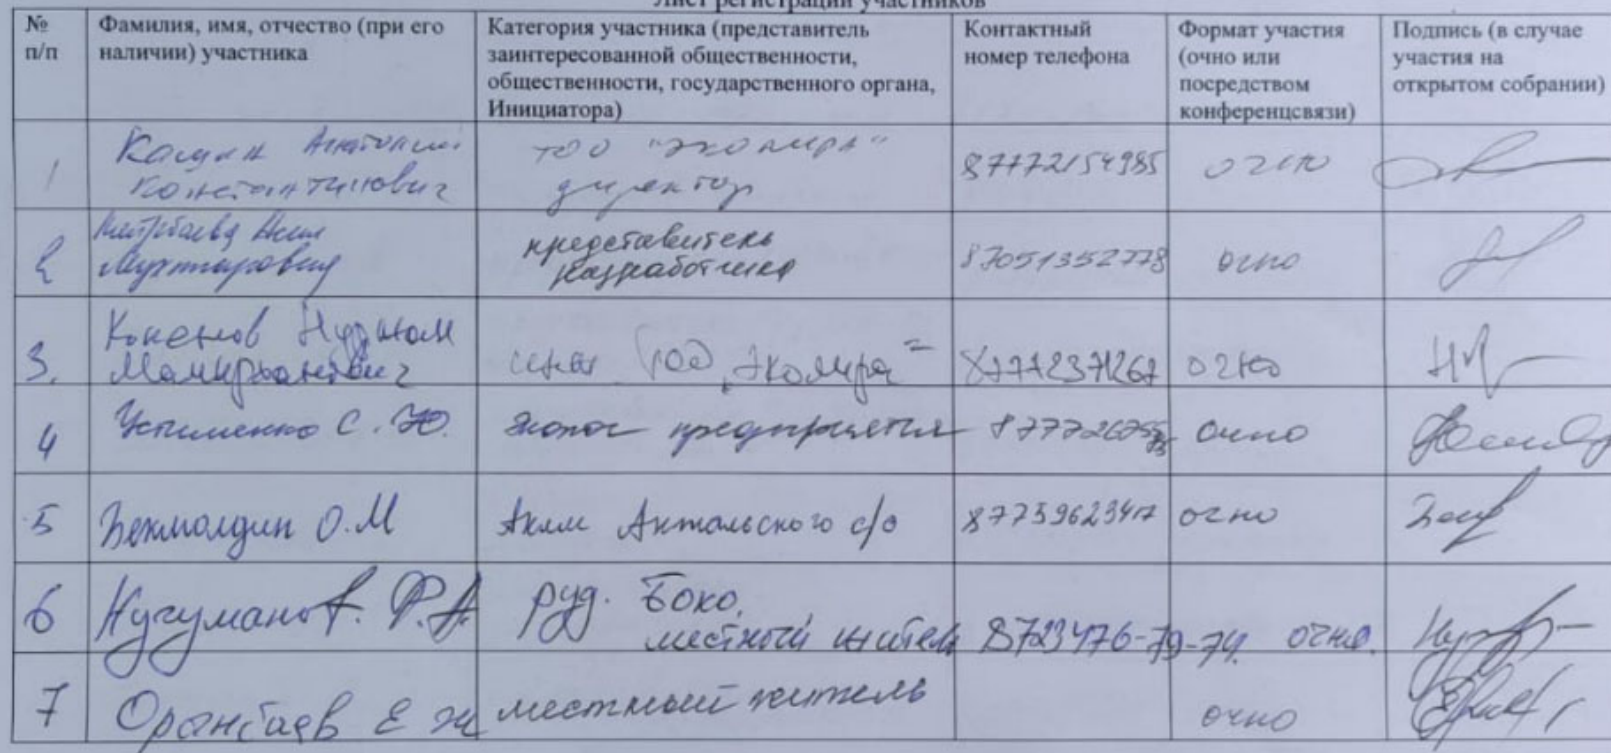 Лист регистрации участников
№ п/п
Фамилия, имя, отчество (при его
наличии) участника
Категория участника (представитель
заинтересованной общественности,
общественности, государственного органа,
Инициатора)
Контактный
номер телефона
Формат участия
(очно или
посредством
конференцсвязи)
Подпись (в случае
участия на
открытом собрании)
1
Константинович
ТОО "Экомира"
директор
87172154985
очно
2
Мухтаровна
представитель
разработчика
87051352778
очно
3.
ТОО "Экомира"
87712371267
очно
4
Устименко С. Ю.
эколог предприятия
очно
5
Бекмолдин О.М
Аким Актальского с/о
87759623417
очно
6
Нугуманов Р.А.
руд. Боко,
местный житель
8723476-79-74.
очно.
7
Орынбаев Е Ж
местный житель
очно